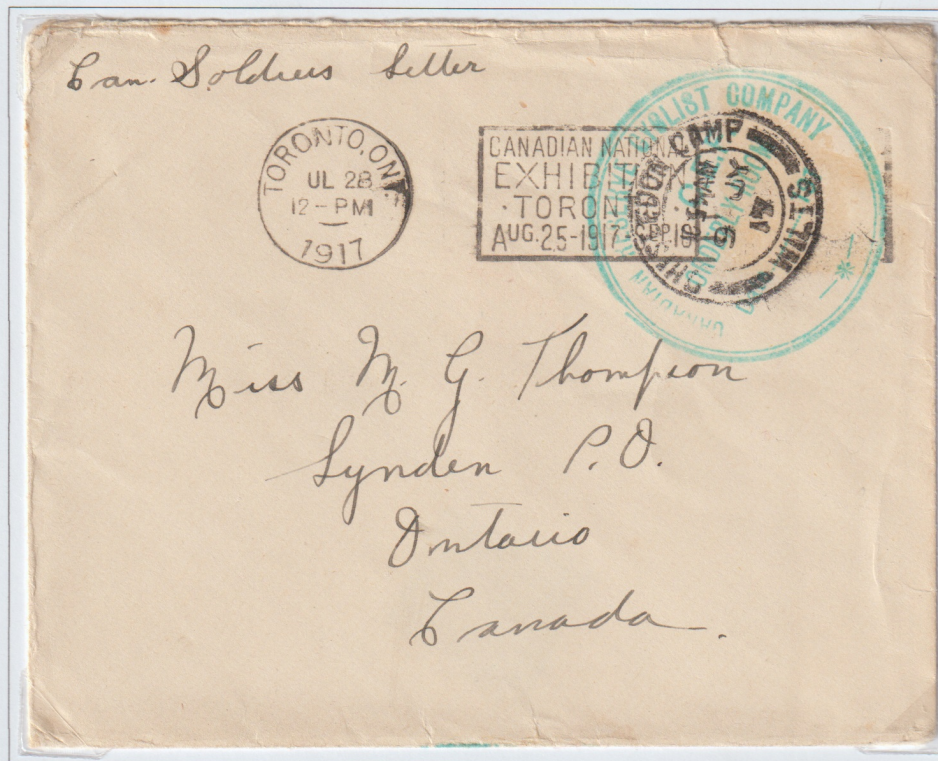 Can. Soldiers Letter
TORONTO, ONT.
UL 28
12-PM
1917
CANADIAN NATIONAL
EXHIBITION
·TORONT
AUG. 25-1917-SEP. 10
CYCLIST COMPANY
CANADIAN
ORDERLY ROOM
CHISELDON CAMP
SWINDON
Miss M. G. Thompson
Lynden P.O.
Ontario
Canada.